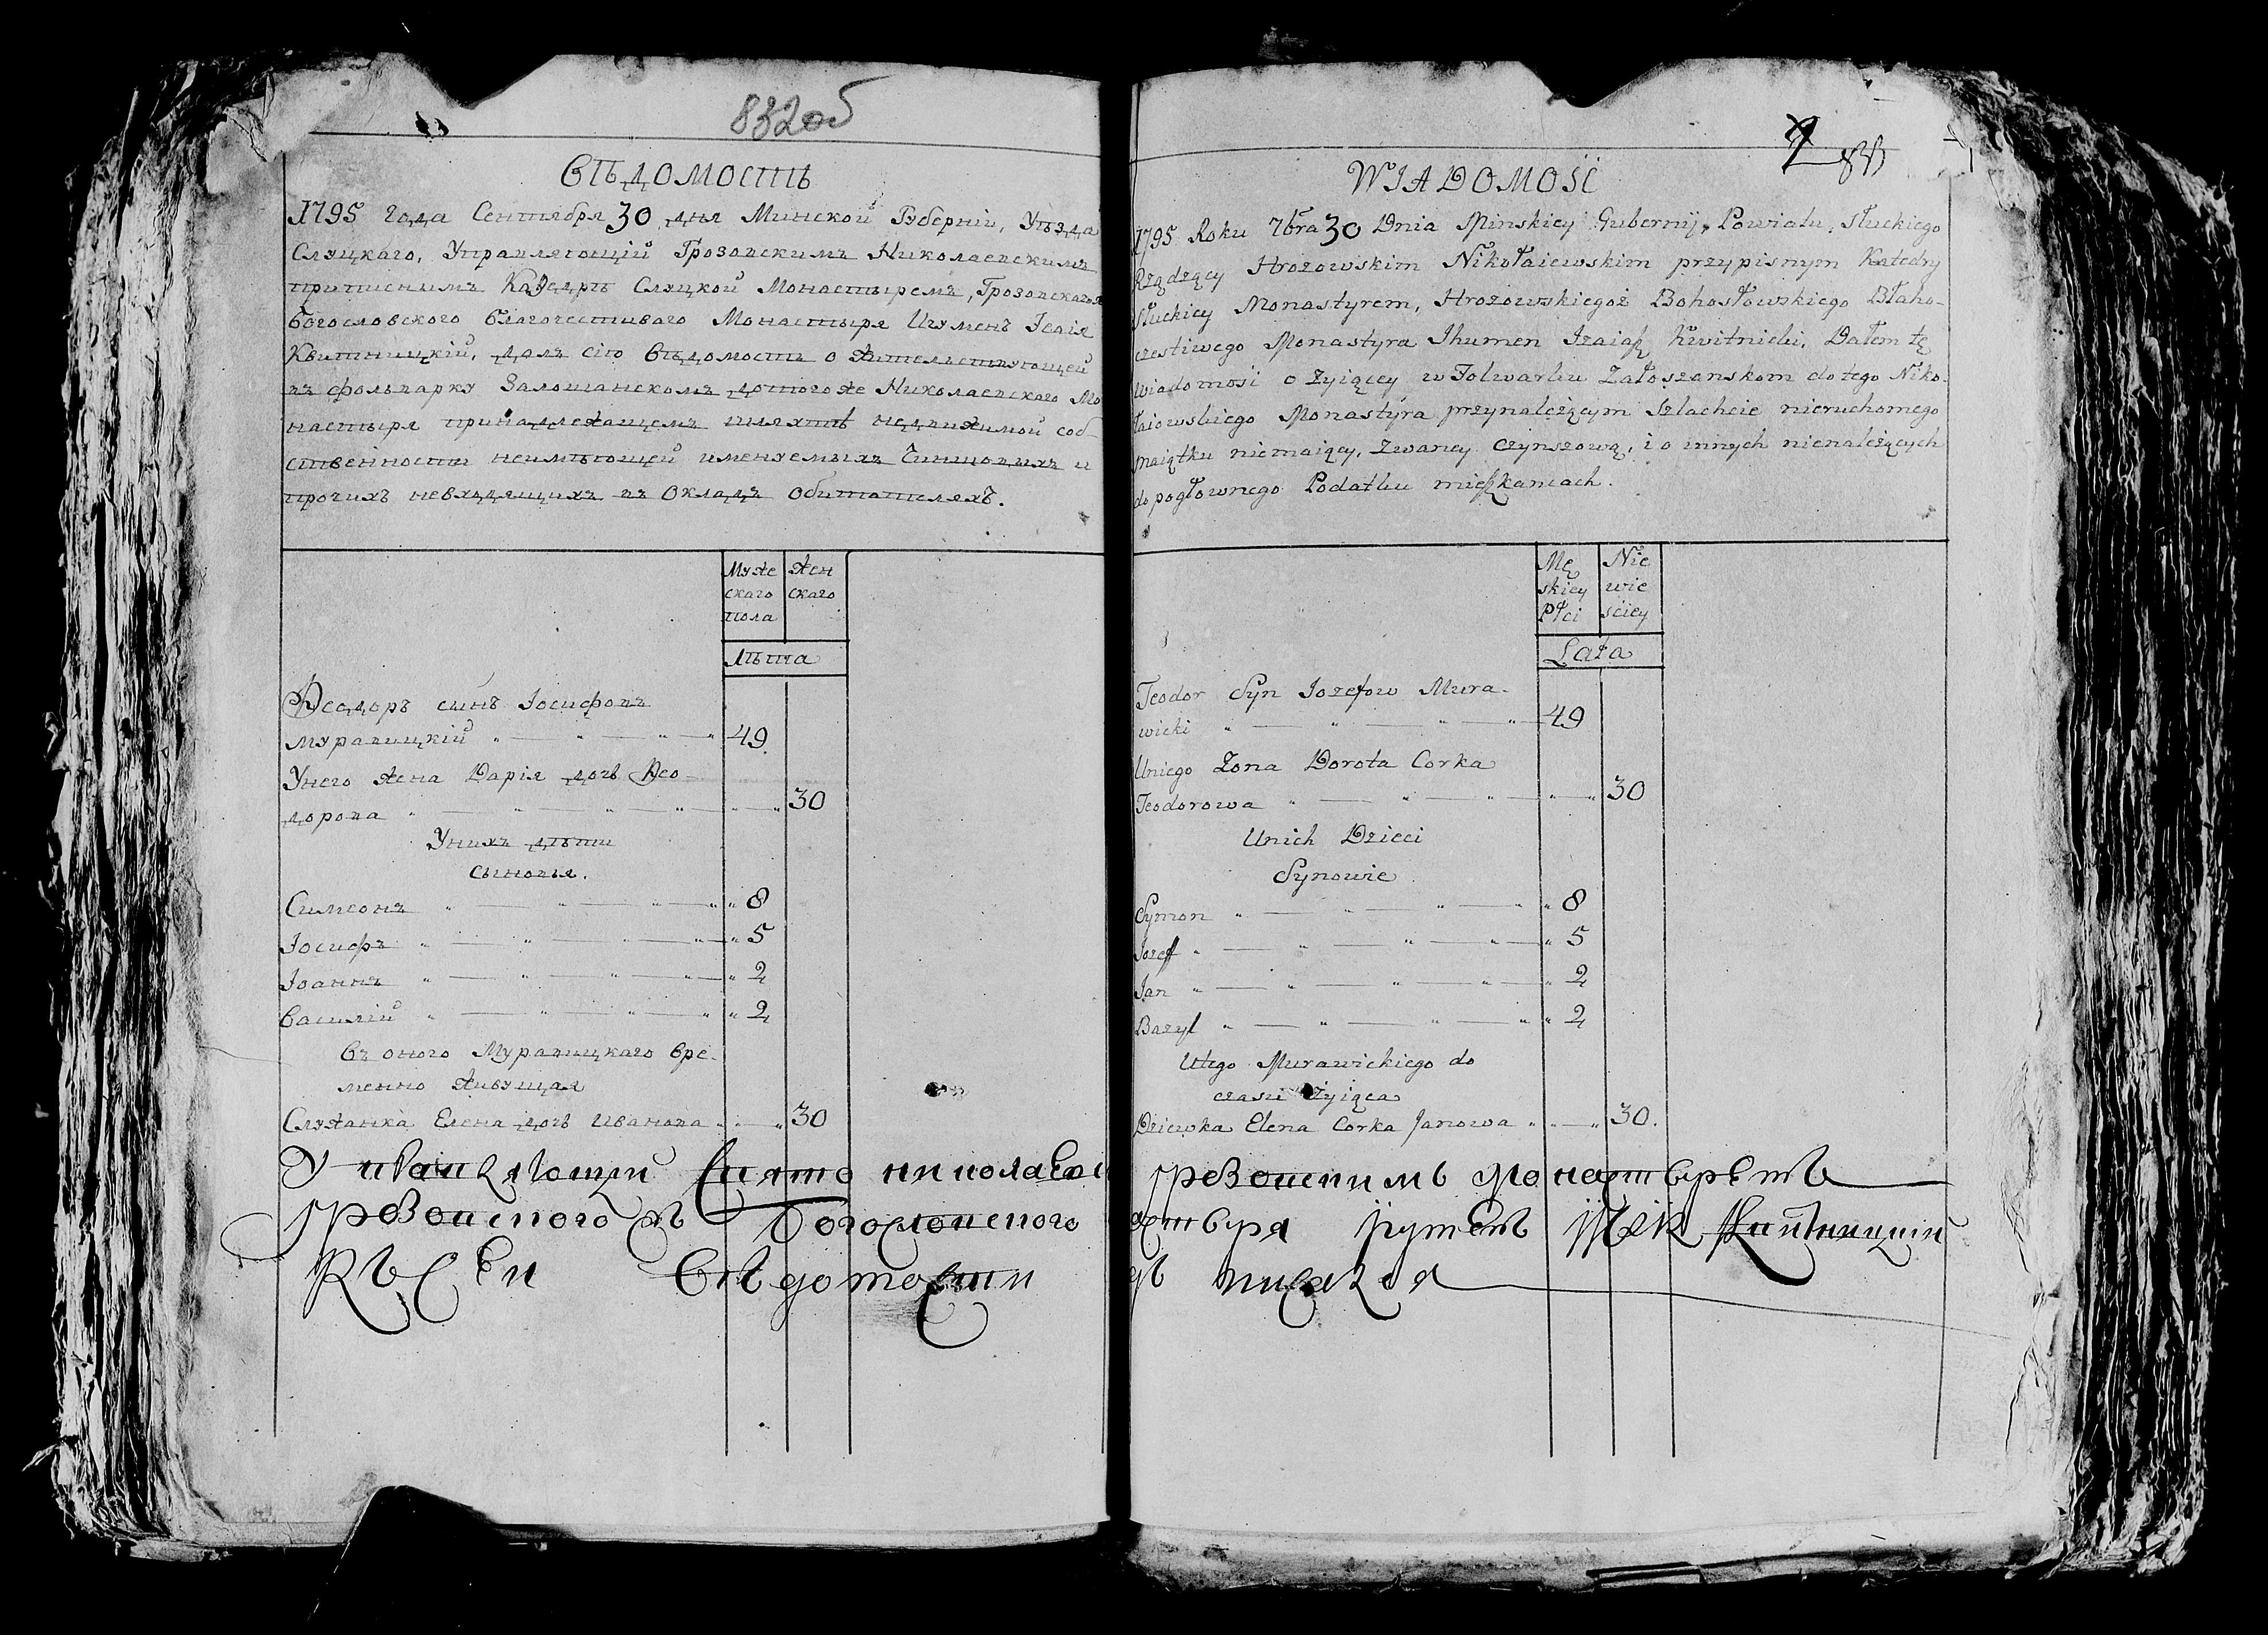 832об
Вѣдомость
1795 Года Сентября 30 дня Минской Губерніи, Уѣзда
Слуцкаго, Управляющій Грозовскимъ Николаевскимъ
приписнимъ Каѳедрѣ Слуцкой Монастыремъ, Грозовскагожъ
Богословского благочестиваго Монастыря Игуменъ Ісаія
Квитницкій, далъ сію Вѣдомость о жительствующей
въ фольварку Залошанскомъ до того же Николаевского Мо
настыря принадлежащемъ шляхтѣ недвижимой соб-
ственности неимѣющей именуемыхъ Чиншовихъ и
прочихъ невходящихъ въ Окладъ Обитателяхъ.
Муже Жен
скаго скаго
пола
Лѣта
Ѳеодоръ синъ Іосифовъ
Муравицкій 49
Унего жена Дарія дочь Ѳео-
дорова 30
Унихъ дѣти
Сыновья.
Симеонъ 8
Іосифъ 5
Іоаннъ 2
Василій 2
Въ оного Муравицкаго вре-
менно живущая
Служанка Елена дочь Иванова 30
WIADOMOŚĆ
1795 Roku 7bra 30 Dnia Minskiey Gubernij, Powiatu, Słuckiego
Rządzący Hrozowskim Nikołaiewskim przypisnym Katedry
Słuckiey Monastyrem, Hrozowskiegoż Bohosłowskiego Błaho-
czestiwego Monastyra Ihumen Izaiasz Kwitnicki, Dałem tę
Wiadomość o żyiącey w Folwarku Załoszanskom do tego Niko-
łaiowskiego Monastyra przynależącym Szlachcie nieruchomego
Maiątku niemaiący, zwaney Czynszową, i o innych nienależących
do pogłownego Podatku mieszkancach.
Mę Nie
skiey wie
Płci ściey
Lata
Teodor Syn Iozefow Mura-
wicki 49
Uniego Zona Dorota Corka
Teodorowa 30
Unich Dzieci
Synowie
Symon 8
Jozeff 5
Jan 2
Bazyl 2
Utego Murawickiego do
czasu żyiąca
Dziewka Elena Corka Janowa 30.
Управляющи Свято николаевс грозовскимъ монастыремъ
грозовского жъ Богословского Игуменъ Квитницкій
Къ Сеи Вѣдомости